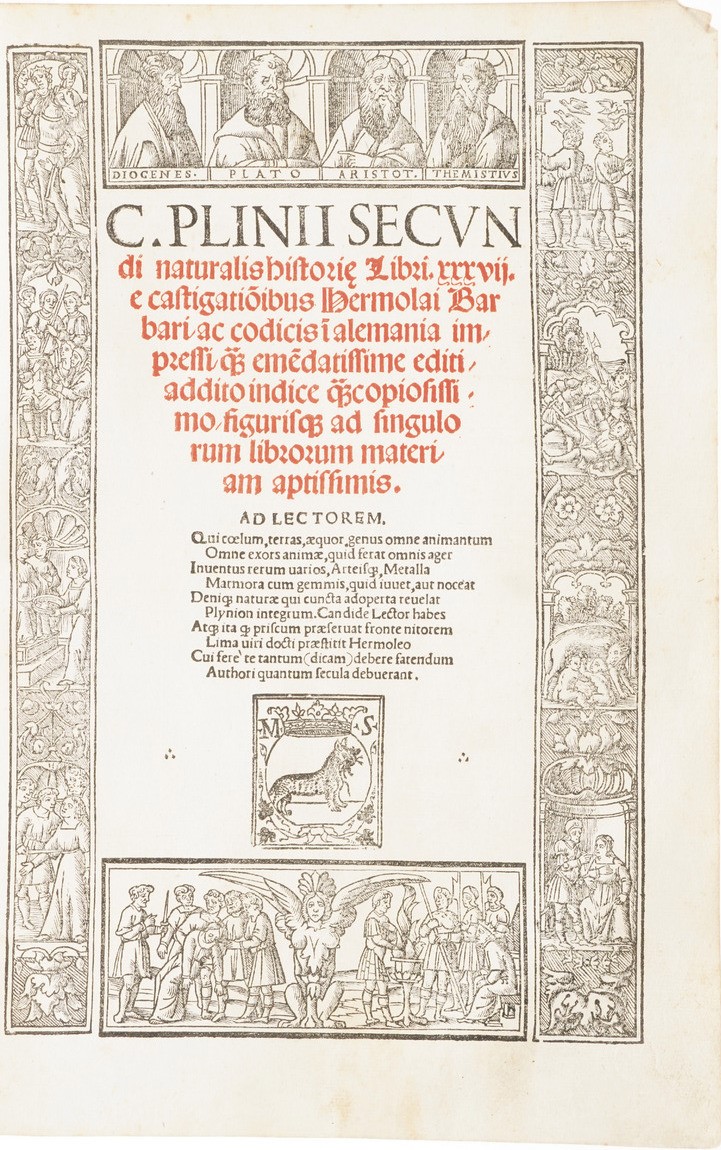 DIOGENES. PLATO ARISTOT. THEMISTIVS
C. PLINII SECVN
di naturalis historię Libri. xxxvij.
e castigatiõibus Hermolai Bar
bari ac codicis ĩ alemania im/
pressi q̃ꝫ emẽdatissime editi/
addito indice q̃ꝫcopiosissi
mo/figurisqꝫ ad singulo
rum librorum materi/
am aptissimis.
AD LECTOREM.
Qui cœlum, terras, æquor, genus omne animantum
Omne exors animæ, quid ferat omnis ager
Inuentus rerum uarios, Arteisqꝫ, Metalla
Marmora cum gemmis, quid iuuet, aut noceat
Deniqꝫ naturæ qui cuncta adoperta reuelat
Plynion integrum. Candide Lector habes
Atqꝫ ita ꝙ priscum præseruat fronte nitorem
Lima uiri docti præstitit Hermoleo
Cui fere te tantum (dicam) debere fatendum
Authori quantum secula debuerant.
M S